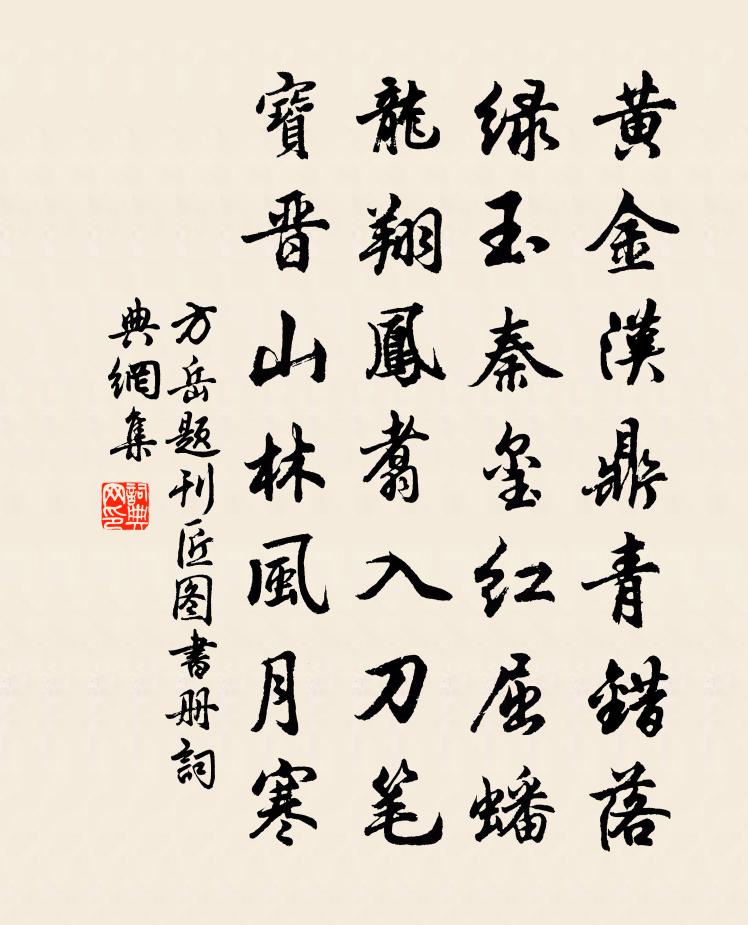 黄金漢鼎青錯落
緑玉秦玺红屈蟠
龍翔鳳翥入刀笔
寶晋山林風月寒
方岳題刊匠图書册詞
典網集
詞典
网印